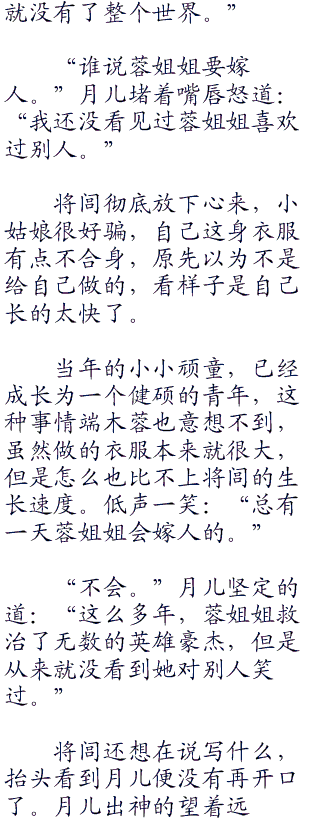 就没有了整个世界。”
“谁说蓉姐姐要嫁
人。”月儿堵着嘴唇怒道：
“我还没看见过蓉姐姐喜欢
过别人。”
将闾彻底放下心来，小
姑娘很好骗，自己这身衣服
有点不合身，原先以为不是
给自己做的，看样子是自己
长的太快了。
当年的小小顽童，已经
成长为一个健硕的青年，这
种事情端木蓉也意想不到，
虽然做的衣服本来就很大，
但是怎么也比不上将闾的生
长速度。低声一笑：“总有
一天蓉姐姐会嫁人的。”
“不会。”月儿坚定的
道：“这么多年，蓉姐姐救
治了无数的英雄豪杰，但是
从来就没看到她对别人笑
过。”
将闾还想在说写什么，
抬头看到月儿便没有再开口
了。月儿出神的望着远